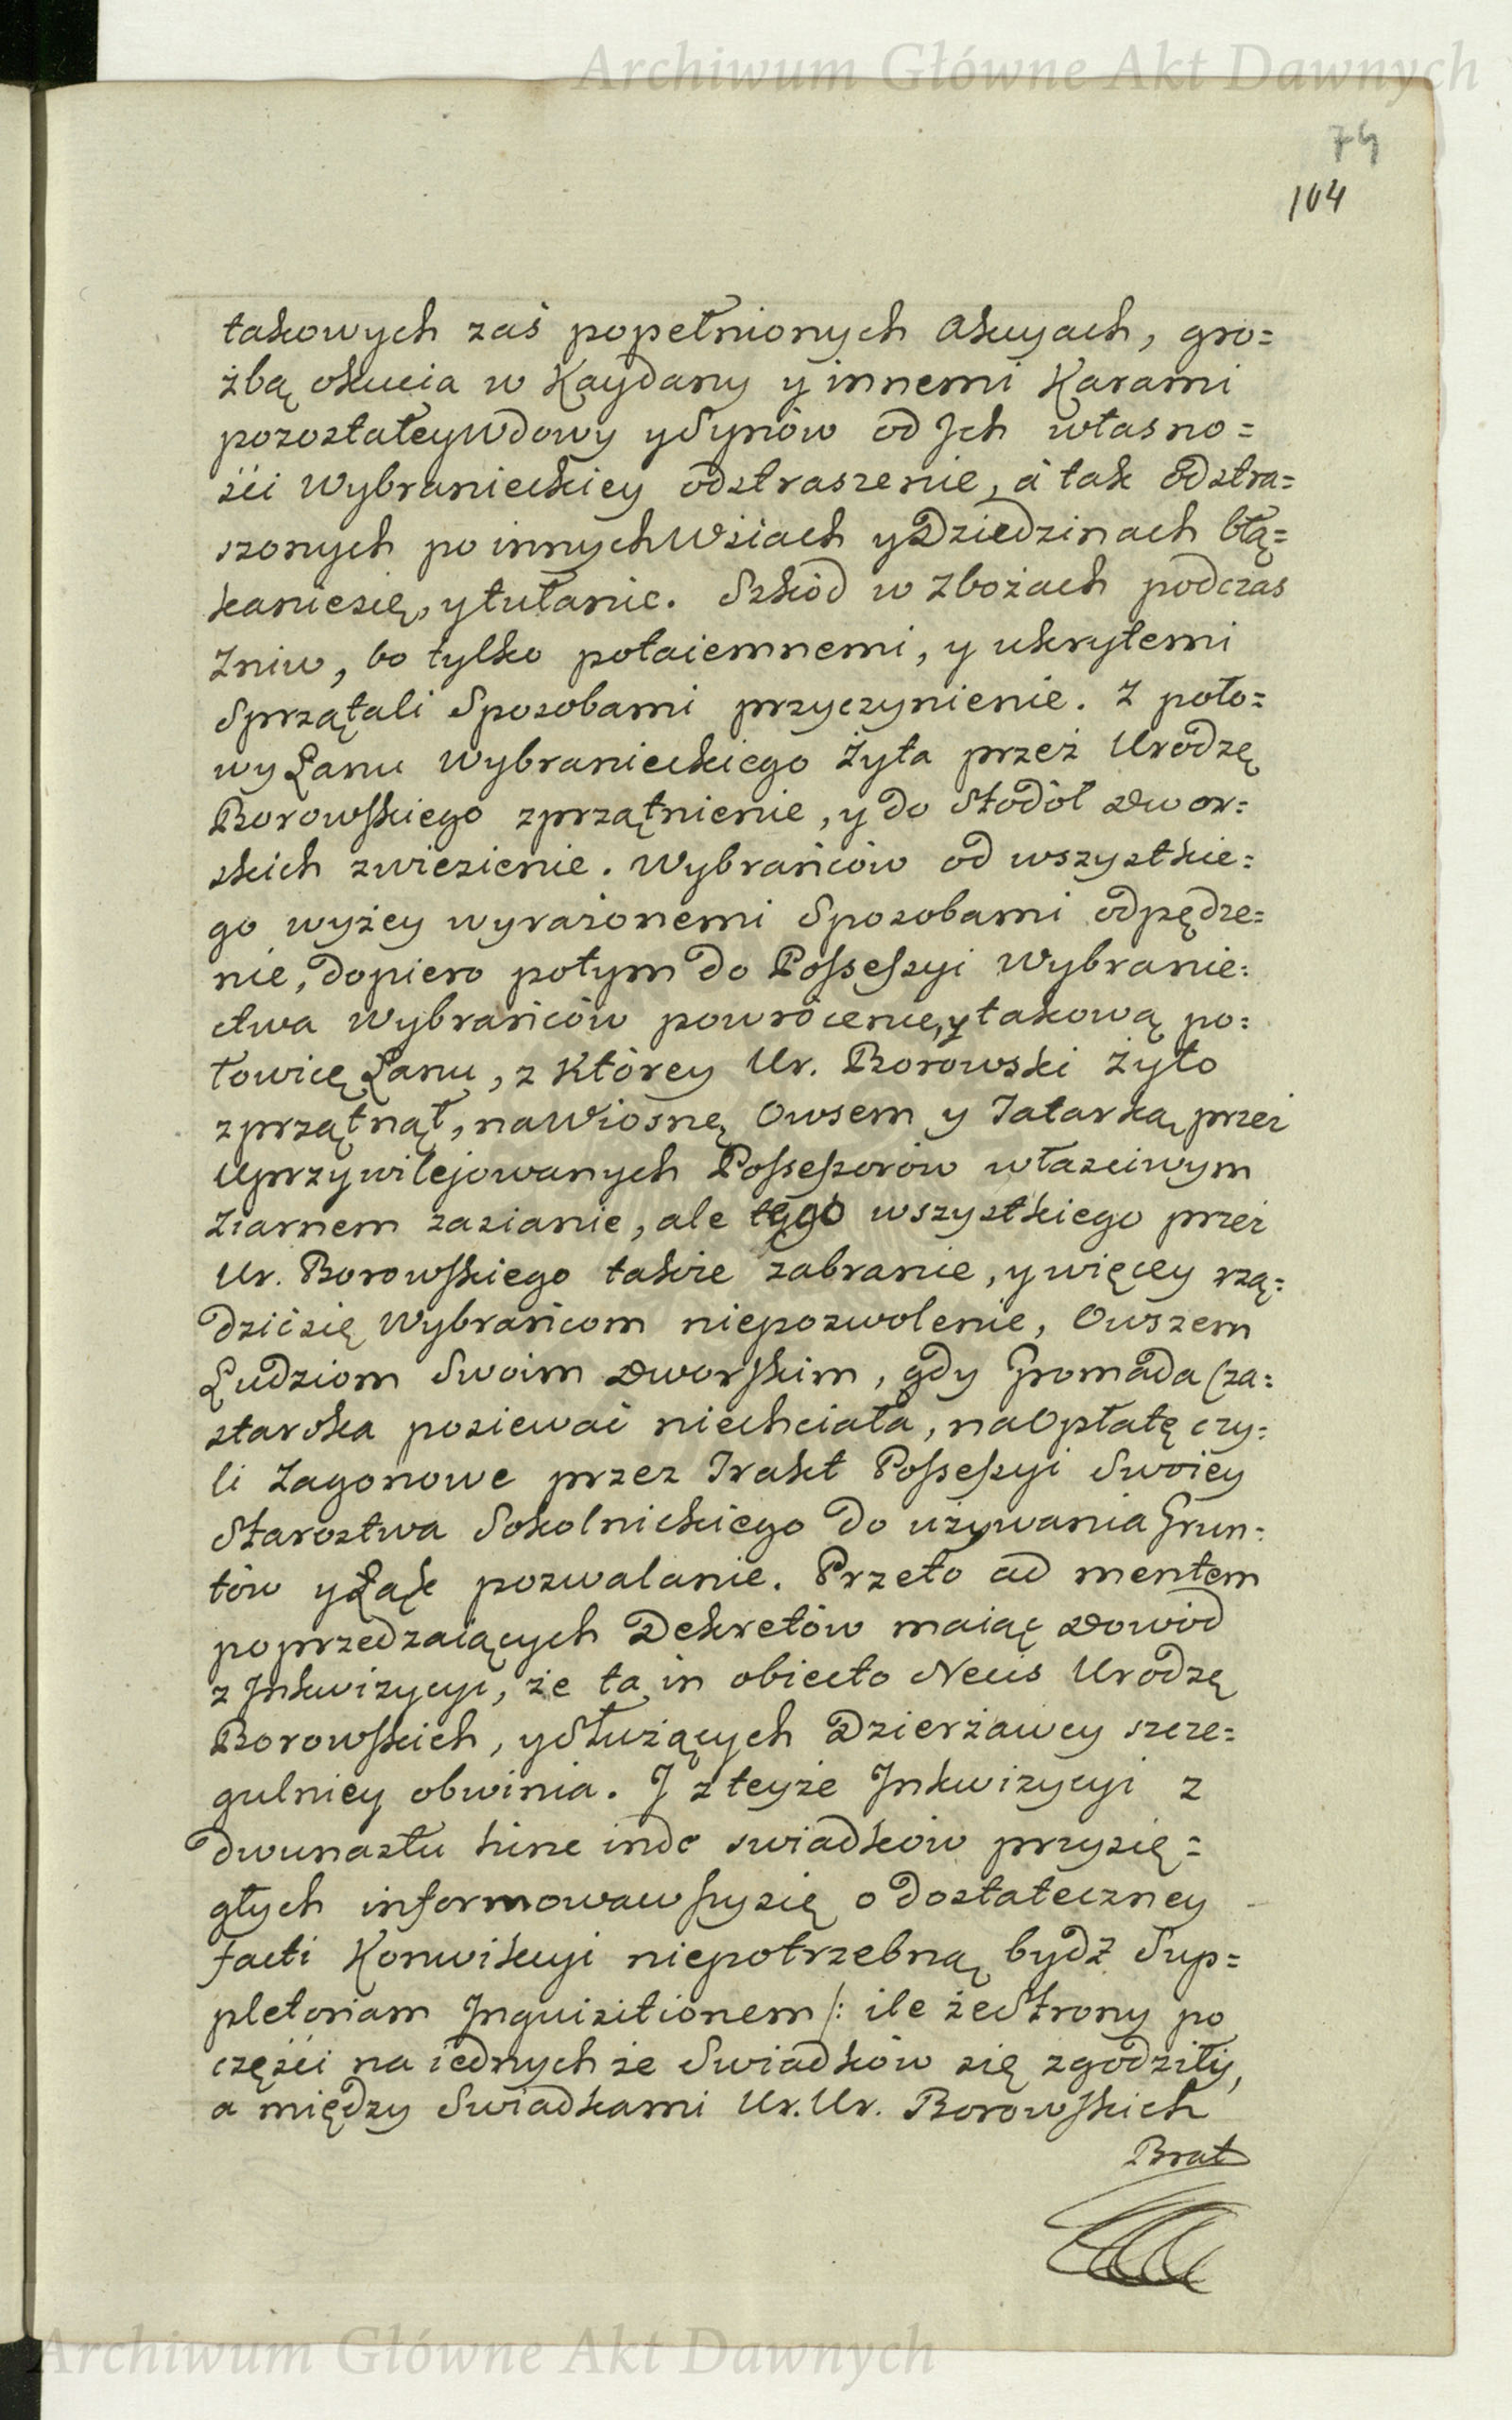 Archiwum Główne Akt Dawnych
74
104
takowych zaś popełnionych Akcyach, gro=
żbą okucia w Kaydany y innemi Karami
pozostałey Wdowy y Synów od Jch własno=
ści Wybranieckiey odstraszenie, á tak odstra=
szonych po innych Wsiach y Dziedzinach błą=
kanie się, y tułanie. Szkód w Zbożach podczas
Zniw, bo tylko potaiemnemi, y ukrytemi
Sprzątali Sposobami przyczynienie. Z poło=
wy Łanu Wybranieckiego Żyta przez Urodzę
Borowskiego zprzątnienie, y do Stodół Dwor=
skich zwiezienie. Wybrańców od wszystkie=
go wyżey wyrażonemi Sposobami odpędze=
nie, dopiero potym do Possessyi Wybranie=
ctwa Wybrańców powrócenie, y takową po=
łowicę Łanu, z Którey Ur. Borowski żyto
zprzątnął, na Wiosnę Owsem y Tatarką przez
Uprzywilejowanych Possessorów właściwym
Ziarnem zasianie, ale tego wszystkiego przez
Ur. Borowskiego także zabranie, y więcey rzą=
dzić się Wybrańcom niepozwolenie, Owszem
Ludziom Swoim Dworskim, gdy Gromada (za=
starcka posiewać niechciała, na Opłatę czy=
li Zagonowe przez Trakt Possessyi Swoiey
Starostwa Sokolnickiego do używania Grun=
tów y Łąk pozwalanie. Przeto ad mentem
poprzedzaiących Dekretów maiąc Dowód
z Jnkwizycyi, że ta in obiecto Necis Urodzę
Borowskich, y Służących Dzierżawcy szcze=
gulniey obwinia. J z teyże Jnkwizycyi z
dwunastu hinc inde swiadków przysię=
głych informowawszy się o dostateczney
facti Konwikcyi niepotrzebną bydź Sup=
pletoriam Jnquisitionem /: ile że Strony po
części na iednychże Swiadków się zgodziły,
a między Swiadkami Ur. Ur. Borowskich
Brat
Archiwum Główne Akt Dawnych